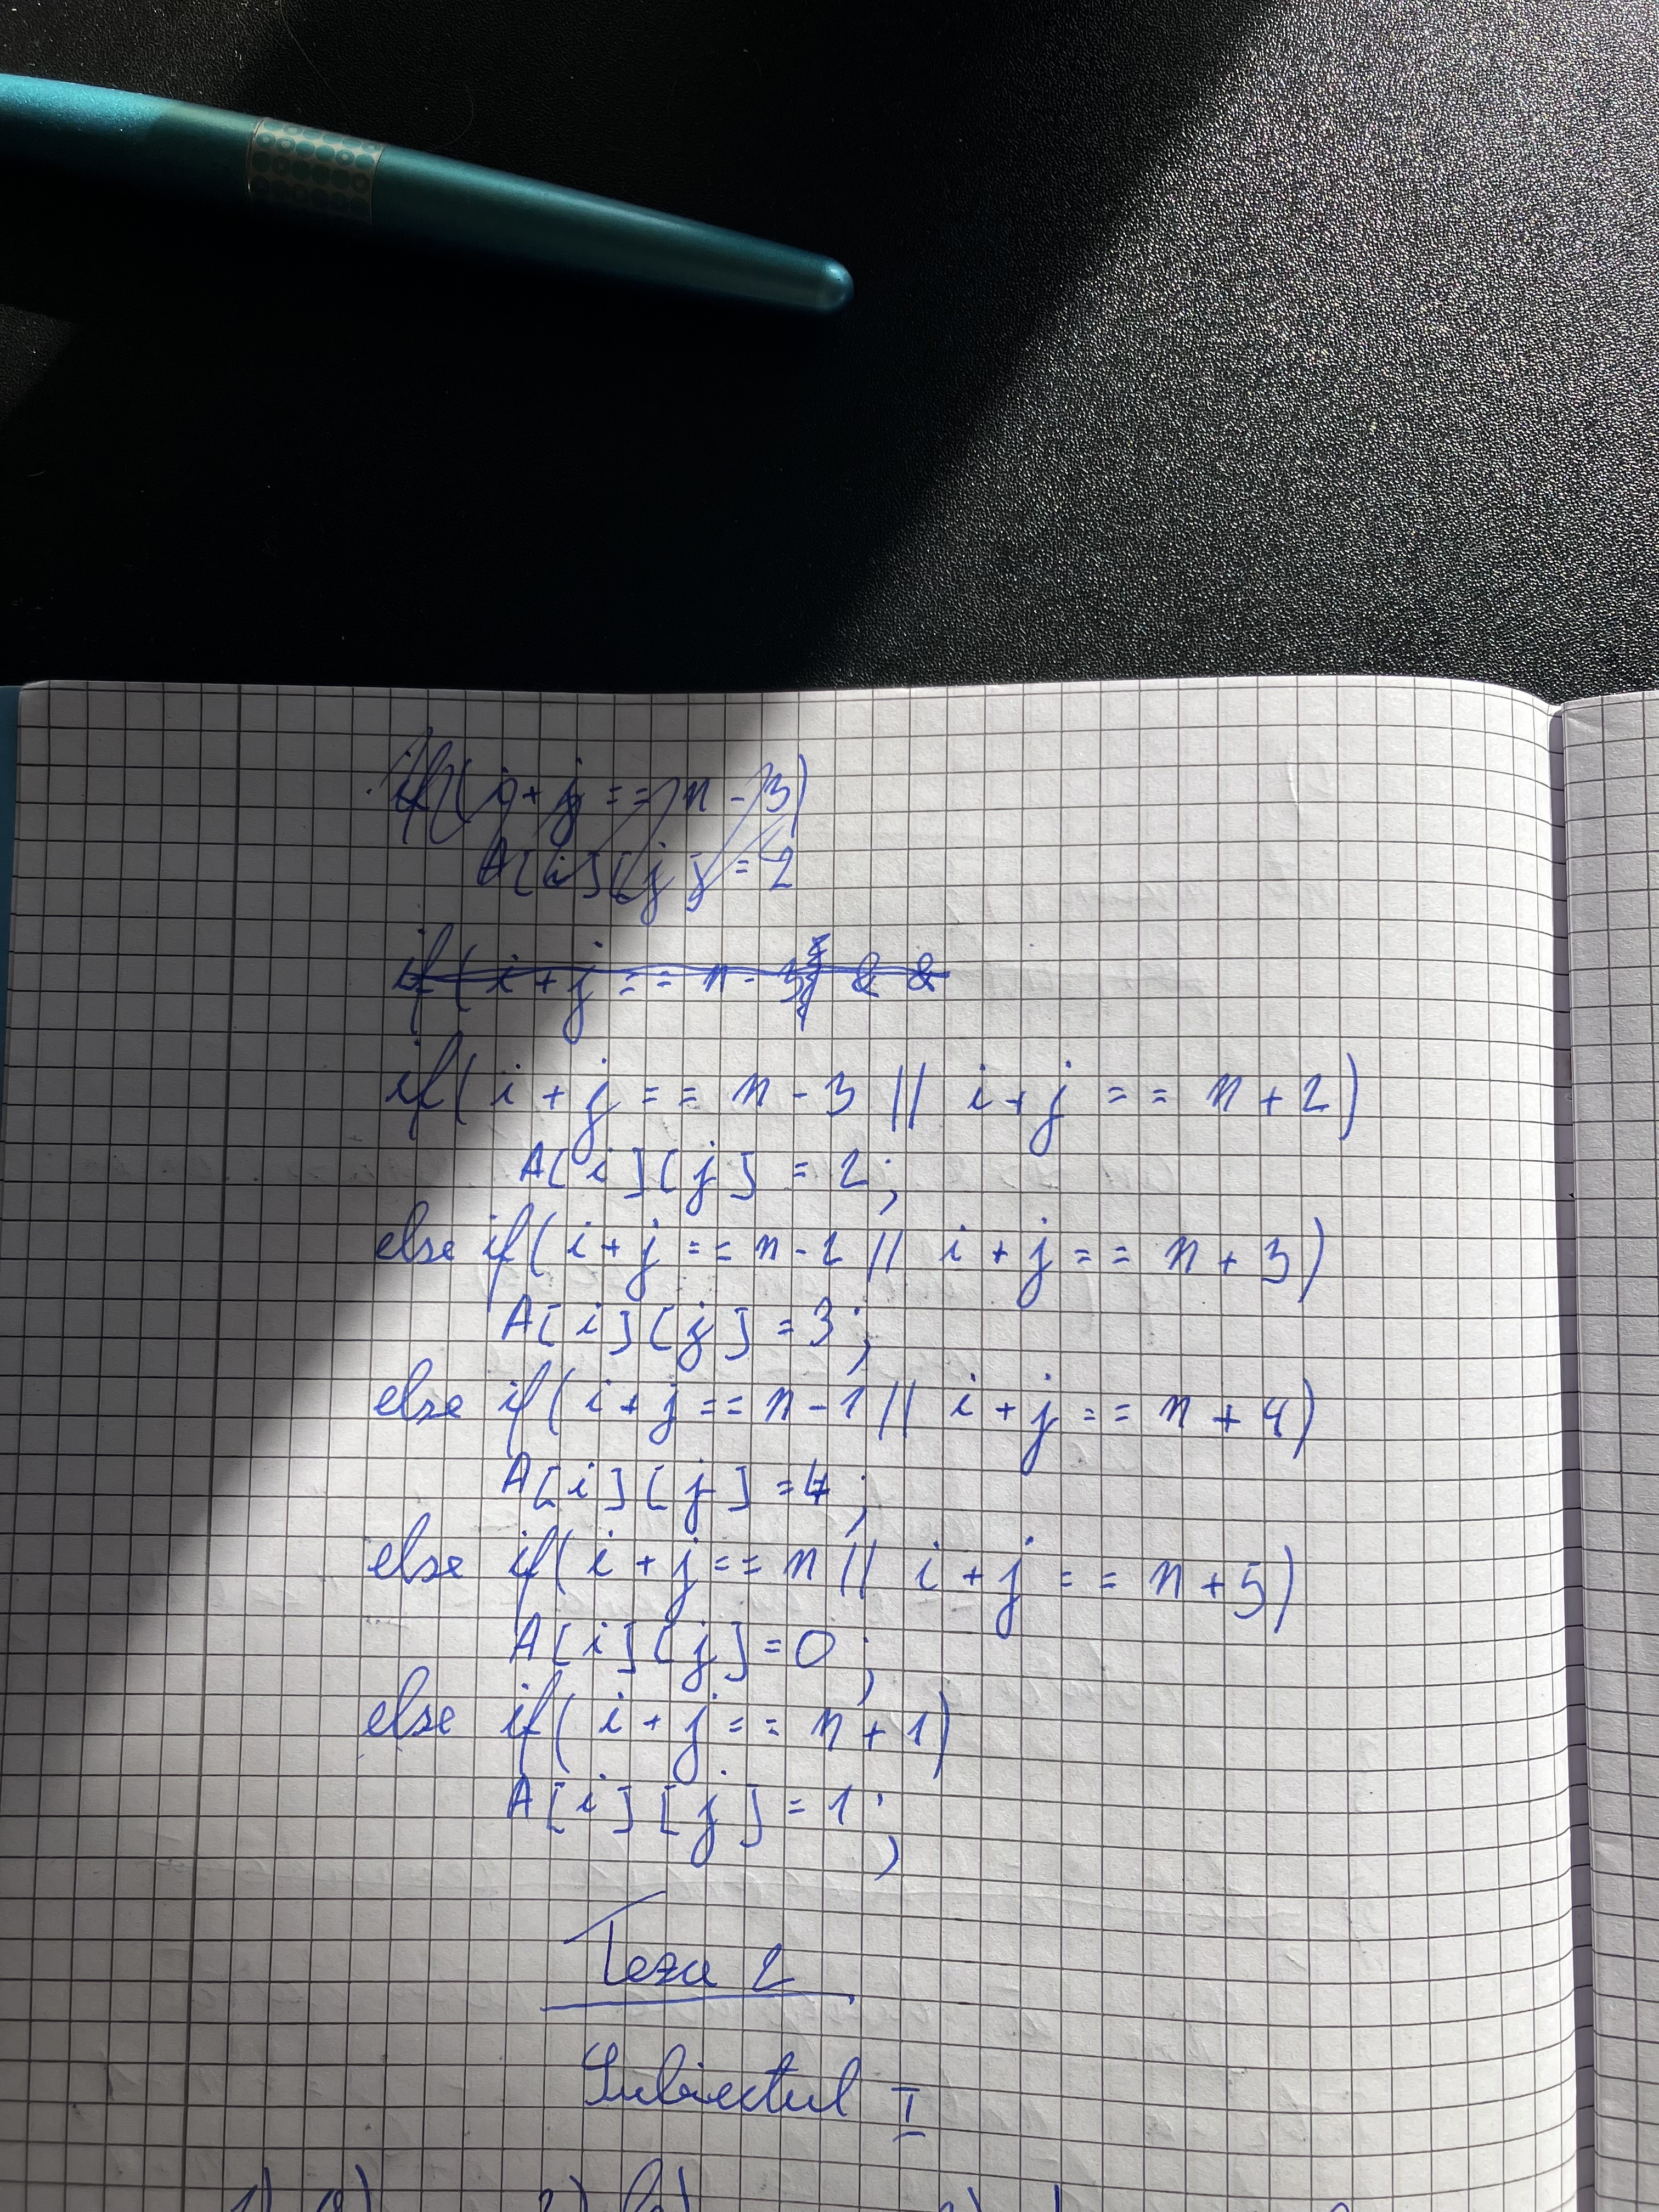 if(i+j==n-3)
A[i][j]=2
if(i+j==n-3 &&
if(i+j==n-3 || i+j==n+2)
A[i][j]=2;
else if(i+j==n-2 || i+j==n+3)
A[i][j]=3;
else if(i+j==n-1 || i+j==n+4)
A[i][j]=4;
else if(i+j==n || i+j==n+5)
A[i][j]=0;
else if(i+j==n+1)
A[i][j]=1;
Teza 2
Subiectul I